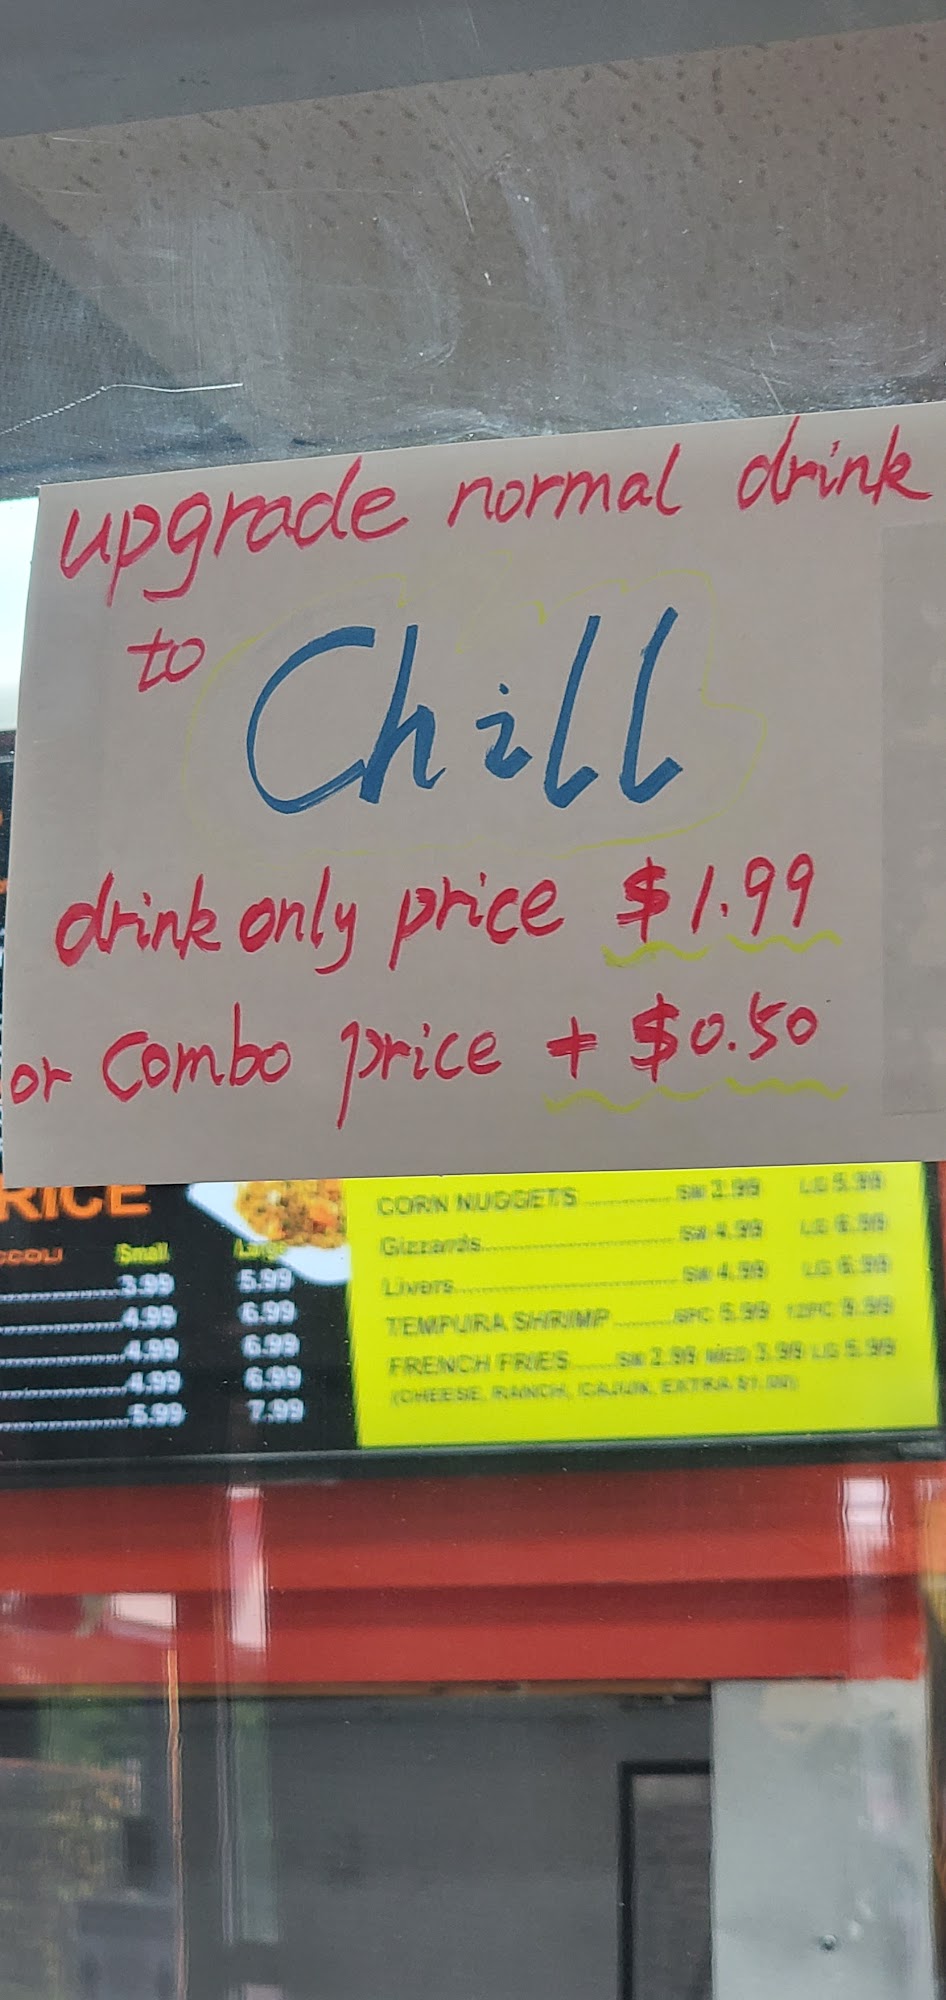 upgrade normal drink
to Chill
drink only price $1.99
or Combo price + $0.50
RICE
CCOLI Small Large
3.99 5.99
4.99 6.99
4.99 6.99
4.99 6.99
5.99 7.99
CORN NUGGETS SM 3.99 LG 5.99
Gizzards SM 4.99 LG 6.99
Livers SM 4.99 LG 6.99
TEMPURA SHRIMP 6PC 5.99 12PC 9.99
FRENCH FRIES SM 2.99 MED 3.99 LG 5.99
(CHEESE, RANCH, CAJUN, EXTRA $1.00)